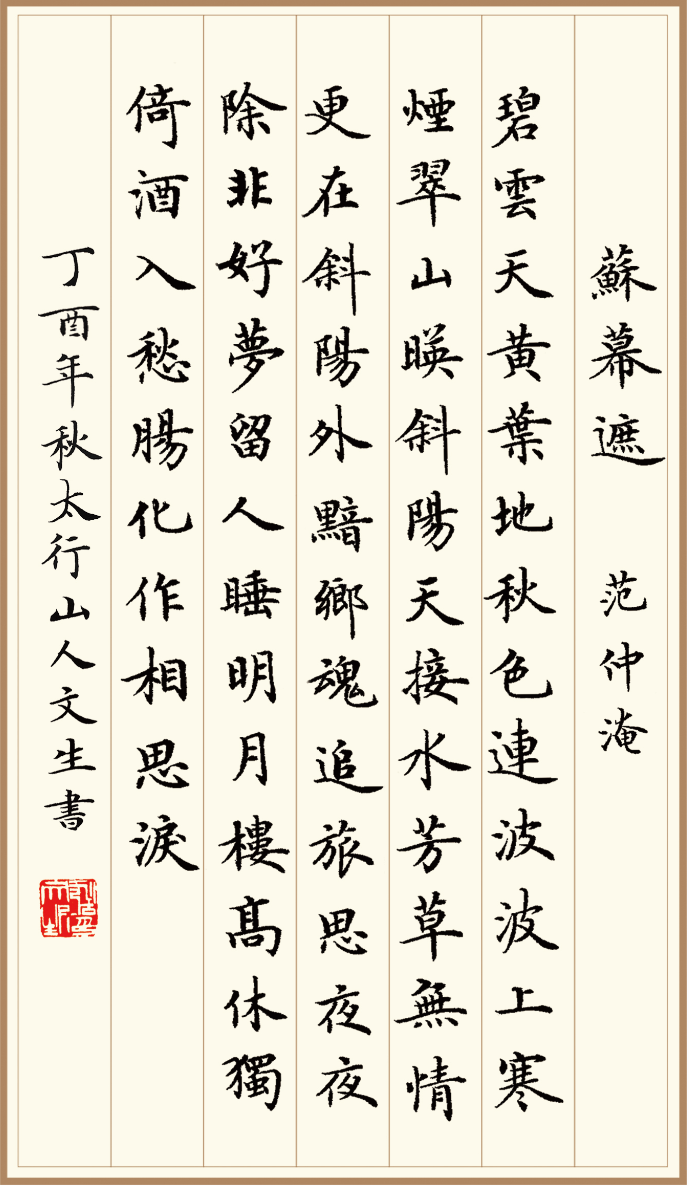 蘇幕遮 范仲淹
碧雲天黃葉地秋色連波波上寒
煙翠山暎斜陽天接水芳草無情
更在斜陽外黯鄉魂追旅思夜夜
除非好夢留人睡明月樓高休獨
倚酒入愁腸化作相思淚
丁酉年秋太行山人文生書